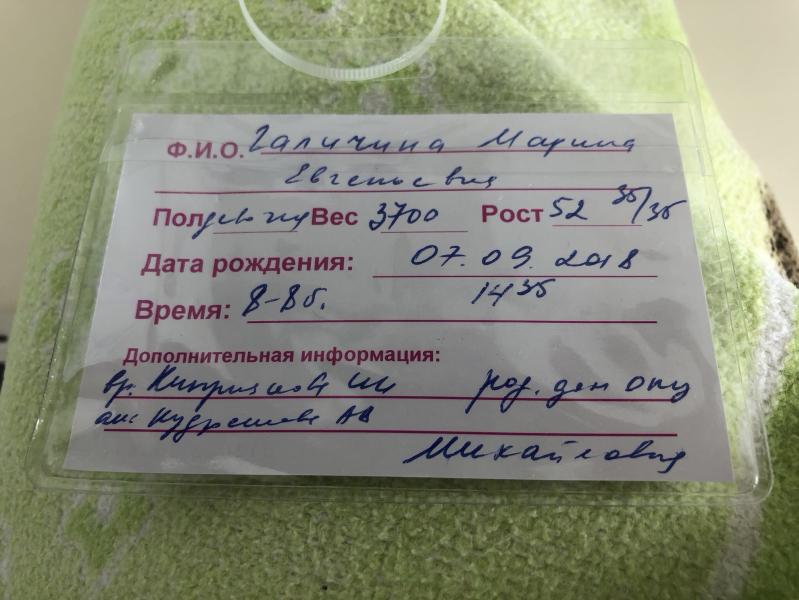 Ф.И.О. Галичина Марина
Евгеньевна
Пол девочка Вес 3700 Рост 52 35/35
Дата рождения: 07.09.2018
Время: 8-8б. 14 35
Дополнительная информация:
вр. род. ден
АВ
Михайловна